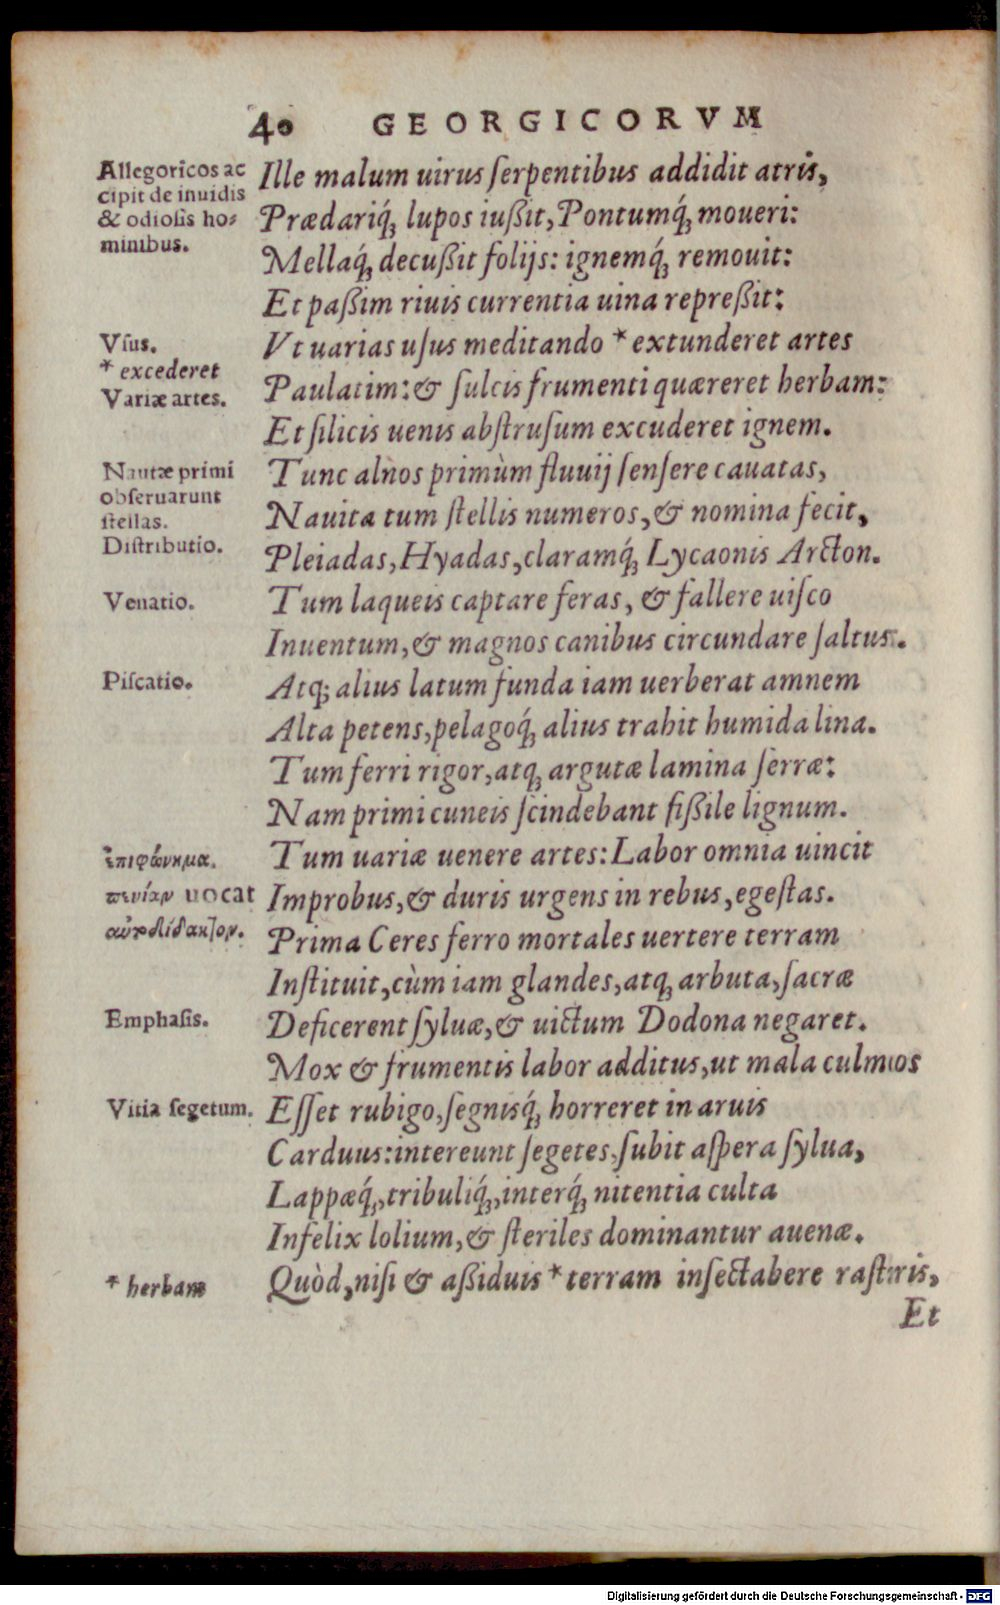 40 GEORGICORVM
Allegoricos ac
cipit de inuidis
& odiosis ho-
minibus.
Ille malum uirus ſerpentibus addidit atris,
Prædariq́; lupos iußit, Pontumq́; moueri:
Mellaq́; decußit folijs: ignemq́; remouit:
Et paßim riuis currentia uina repreßit:
Vſus.
Vt uarias uſus meditando * extunderet artes
* excederet
Variæ artes.
Paulatim: & ſulcis frumenti quæreret herbam:
Et ſilicis uenis abſtruſum excuderet ignem.
Nautæ primi
obſeruarunt
ſtellas.
Diſtributio.
Tunc alnos primùm fluuij ſenſere cauatas,
Nauita tum ſtellis numeros, & nomina fecit,
Pleiadas, Hyadas, claramq́; Lycaonis Arcton.
Venatio.
Tum laqueis captare feras, & fallere uiſco
Inuentum, & magnos canibus circundare ſaltus.
Piſcatio.
Atq; alius latum funda iam uerberat amnem
Alta petens, pelagoq́; alius trahit humida lina.
Tum ferri rigor, atq; argutæ lamina ſerræ:
Nam primi cuneis ſcindebant fißile lignum.
ἐπιφώνημα.
πενίαν uocat
αὐτοδίδακτον.
Tum uariæ uenere artes: Labor omnia uincit
Improbus, & duris urgens in rebus, egeſtas.
Prima Ceres ferro mortales uertere terram
Inſtituit, cùm iam glandes, atq; arbuta, ſacræ
Emphaſis.
Deficerent ſyluæ, & uictum Dodona negaret.
Mox & frumentis labor additus, ut mala culmos
Vitia ſegetum.
Eſſet rubigo, ſegnisq́; horreret in aruis
Carduus: intereunt ſegetes, ſubit aſpera ſylua,
Lappæq́;, tribuliq́;, interq́; nitentia culta
Infelix lolium, & ſteriles dominantur auenæ.
* herbam
Quòd, niſi & aßiduis * terram inſectabere raſtris,
Et
Digitalisierung gefördert durch die Deutsche Forschungsgemeinschaft - DFG